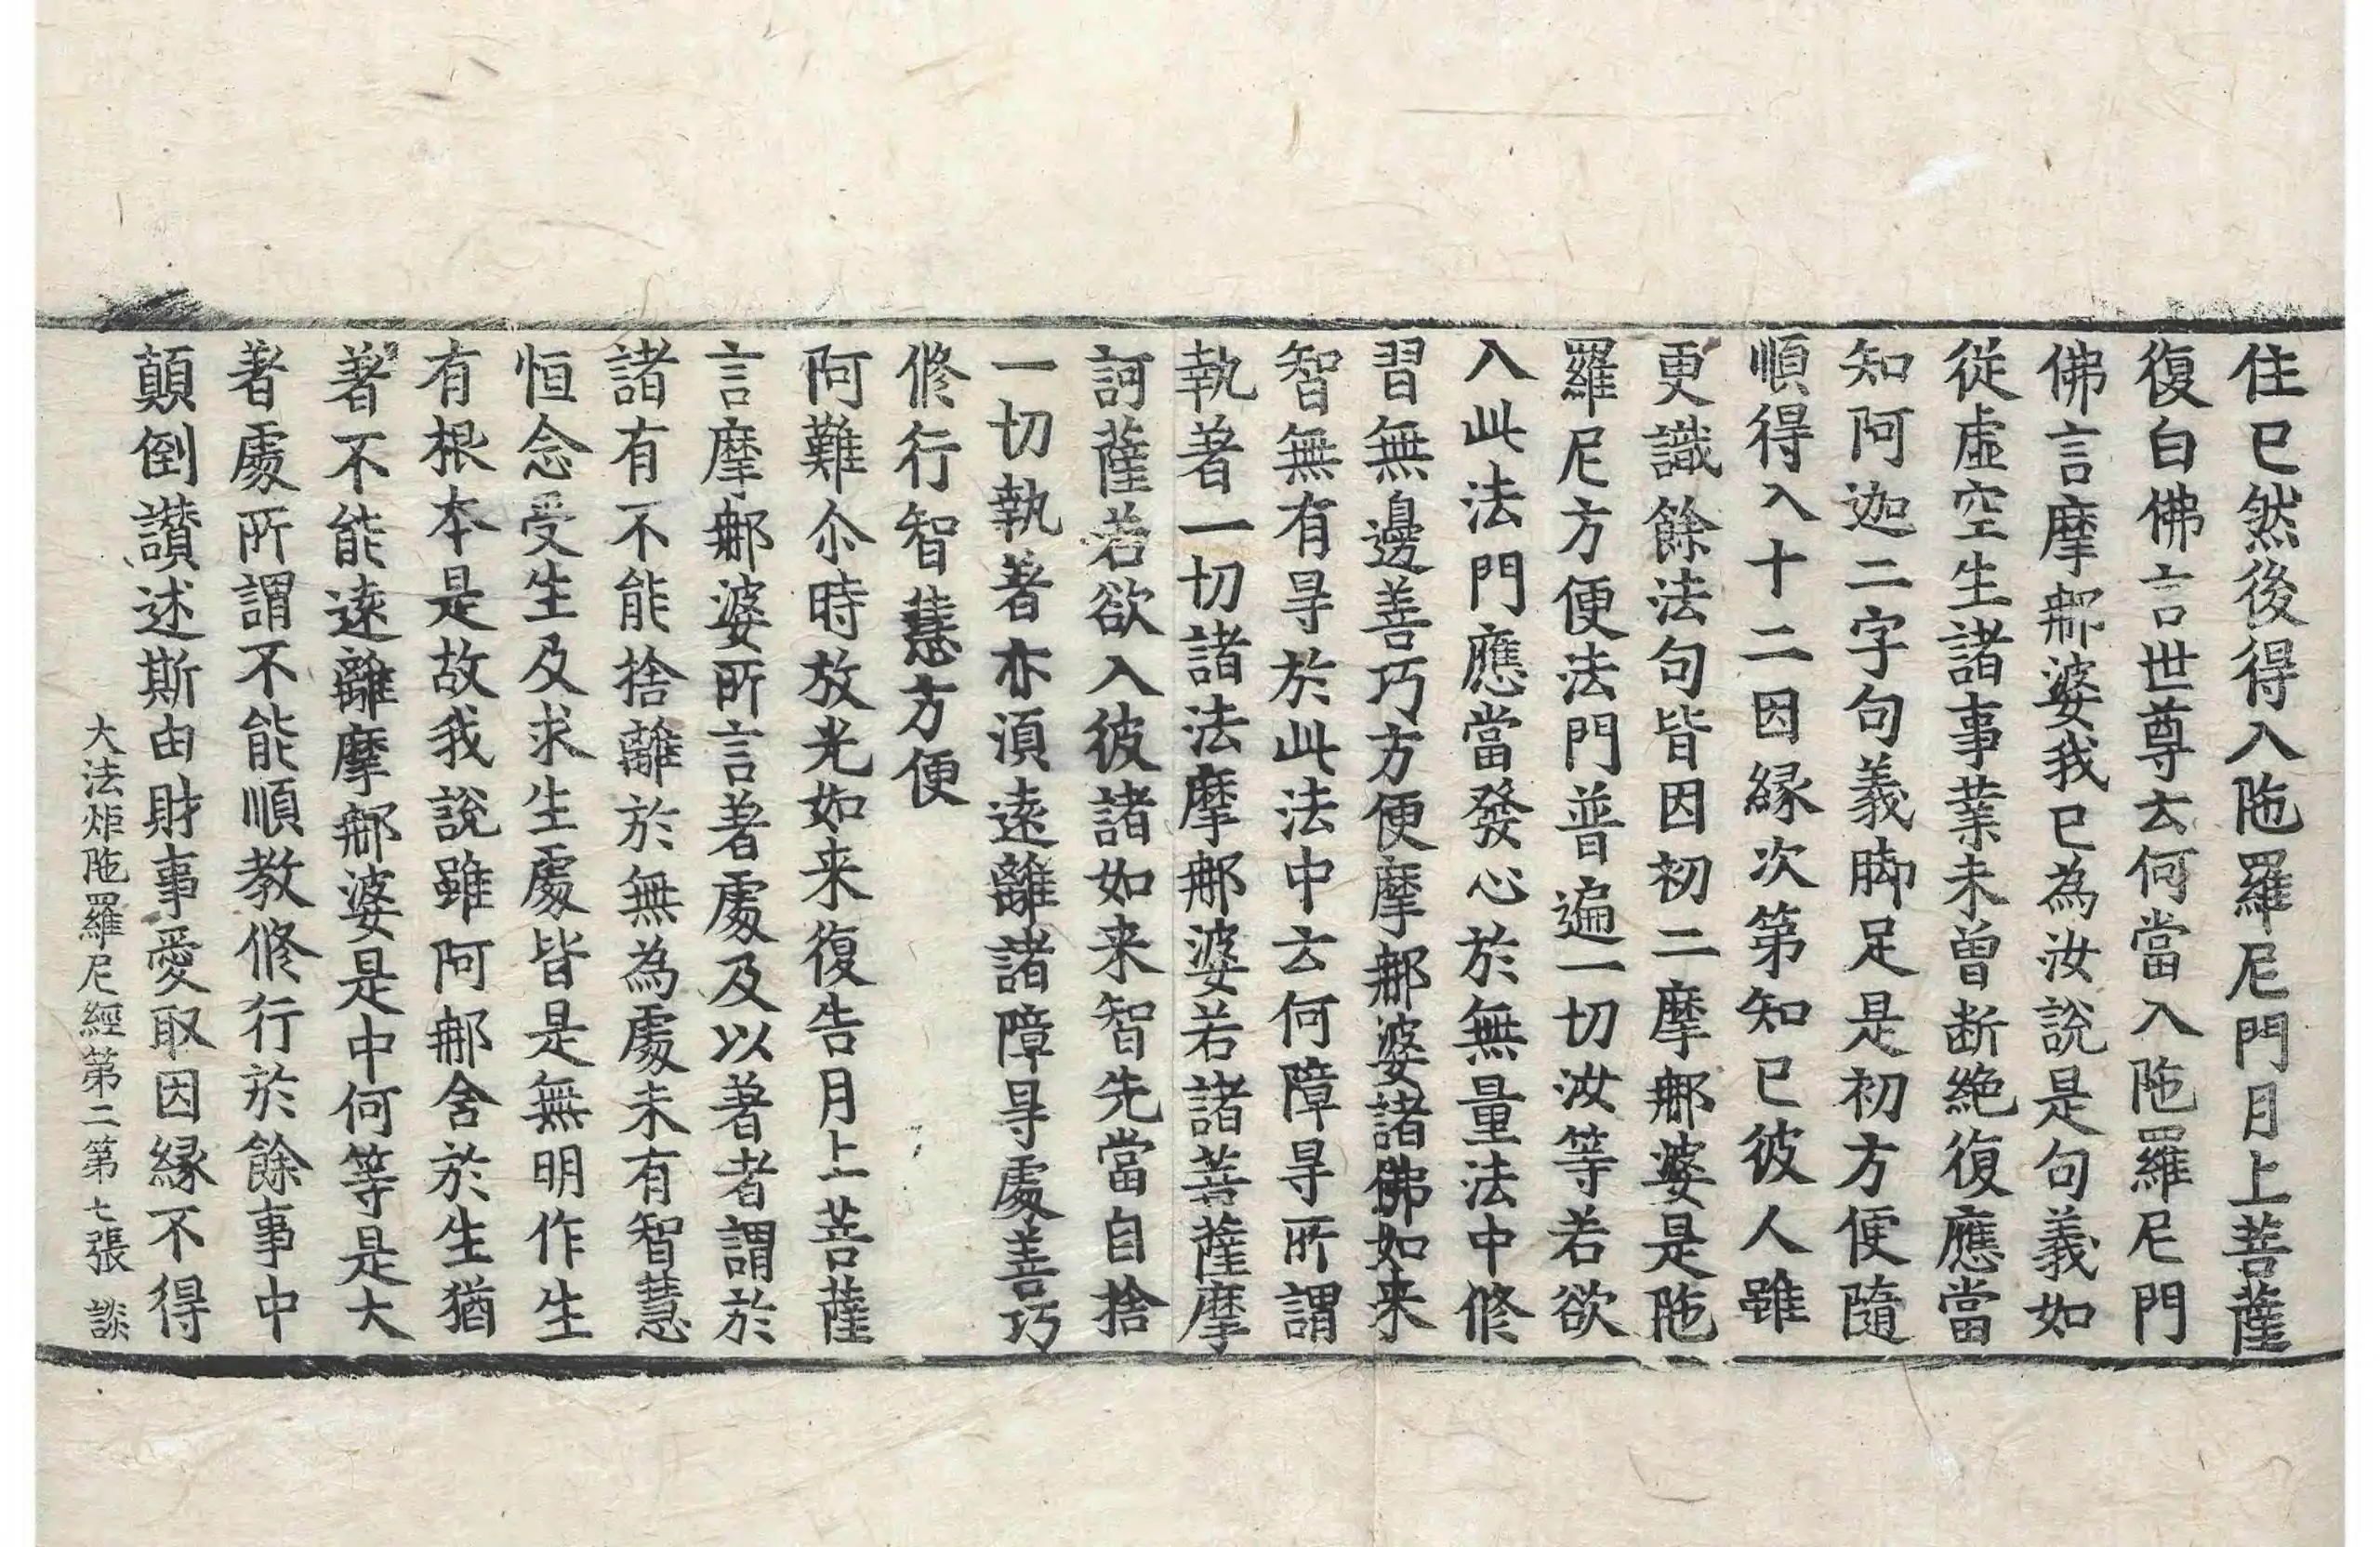 住已然後得入陁羅尼門月上菩薩
復白佛言世尊云何當入陁羅尼門
佛言摩那婆我已為汝說是句義如
從虛空生諸事業未曾断絶復應當
知阿迦二字句義脚足是初方便隨
順得入十二因縁次第知已彼人雖
更識餘法句皆因初二摩那婆是陁
羅尼方便法門普遍一切汝等若欲
入此法門應當發心於無量法中修
習無邊善巧方便摩那婆諸佛如来
智無有㝵於此法中云何障㝵所謂
執著一切諸法摩那婆若諸菩薩摩
訶薩若欲入彼諸如来智先當自捨
一切執著亦湏逺離諸障㝵處善巧
修行智慧方便
阿難尒時放光如来復告月上菩薩
言摩那婆所言著處及以著者謂於
諸有不能捨離於無為處未有智慧
恒念受生及求生處皆是無明作生
有根本是故我說雖阿那含於生猶
著不能逺離摩那婆是中何等是大
著處所謂不能順教修行於餘事中
顛倒讃述斯由財事愛取因縁不得
大法炬陁羅尼經第二第七張 談